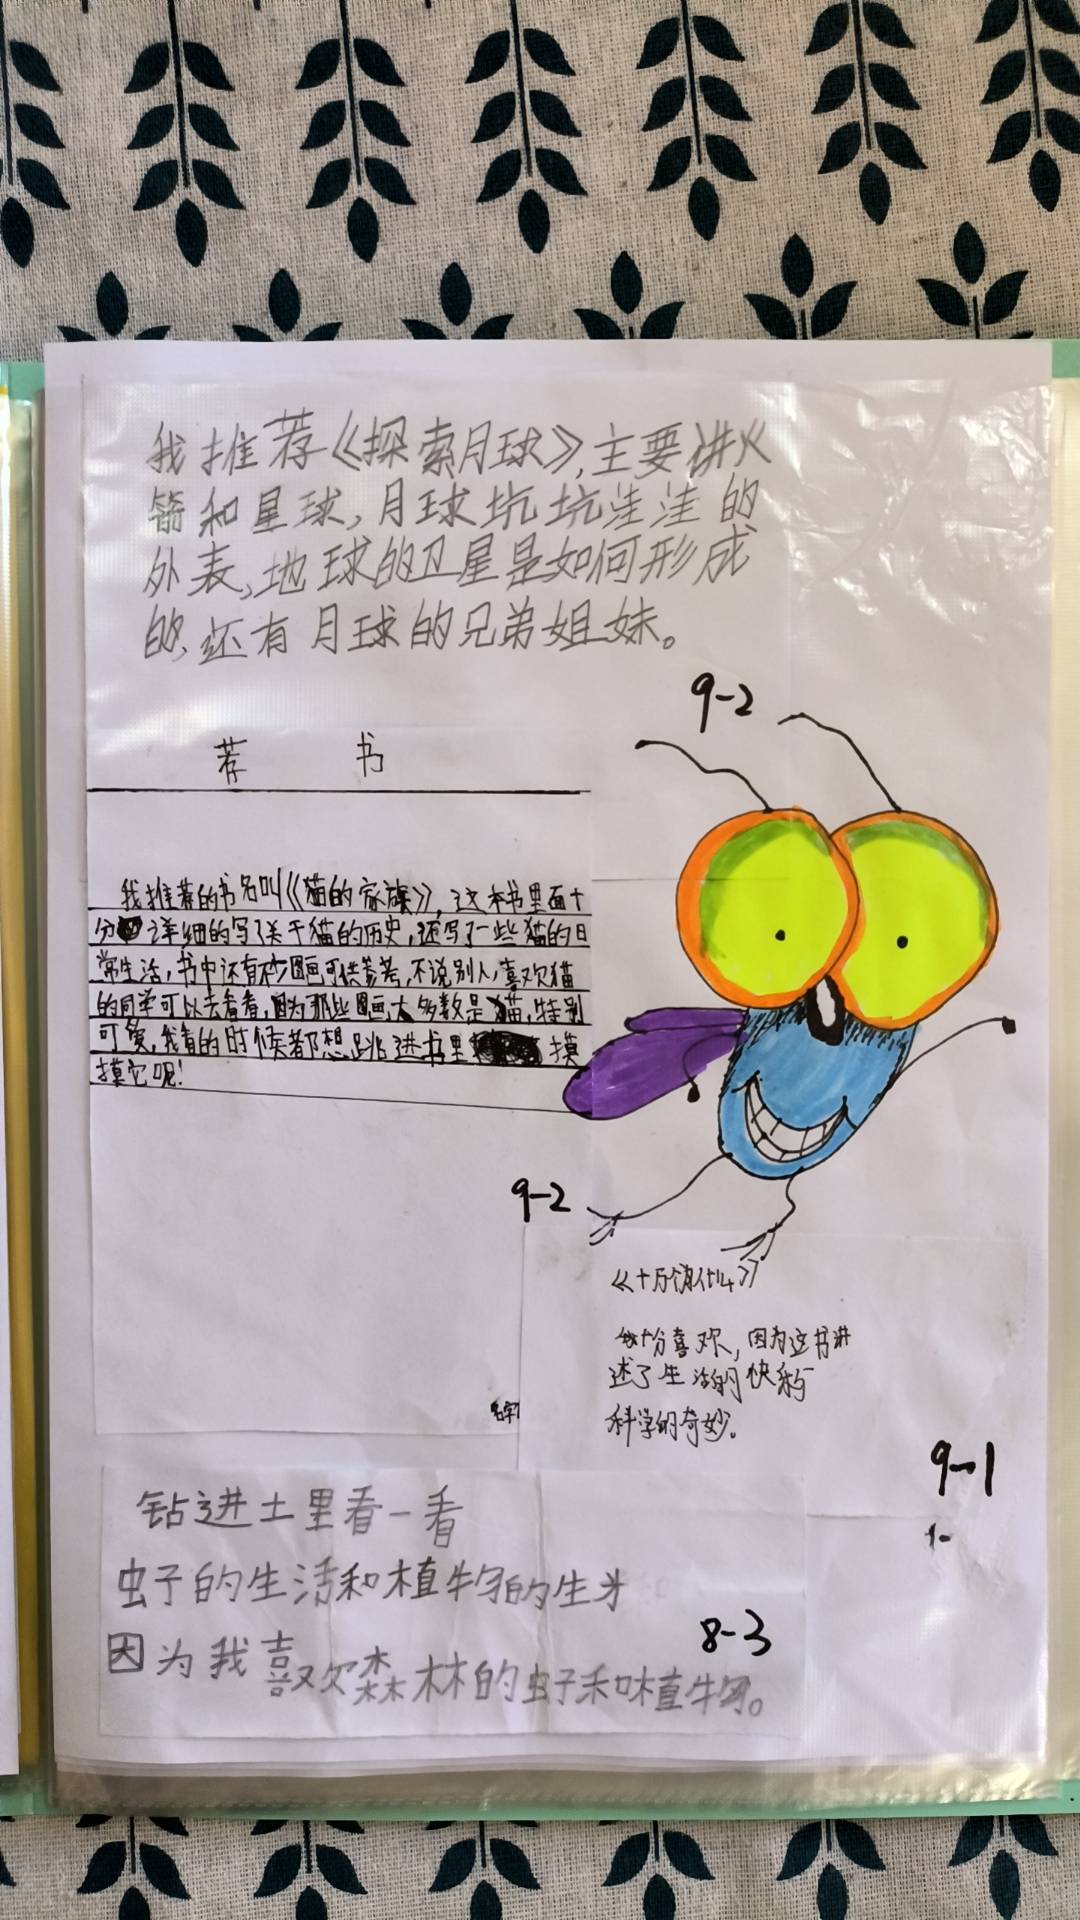 我推荐《探索月球》，主要讲火
箭和星球，月球坑坑洼洼的
外表，地球的卫星是如何形成
的，还有月球的兄弟姐妹。
9-2
荐 书
我推荐的书名叫《猫的家族》，这本书里面十
分详细的写了关于猫的历史，还写了一些猫的日
常生活，书中还有图画可供参考，不说别人，喜欢猫
的同学可以去看看，因为那些图画大多数是猫，特别
可爱，我看的时候都想跳进书里摸
摸它呢！
9-2
《十万个为什么》
我十分喜欢，因为这书讲
述了生活的快乐与
科学的奇妙。
名字
9-1
1-
钻进土里看一看
虫子的生活和植物的生长
8-3
因为我喜欢森林的虫子和植物。